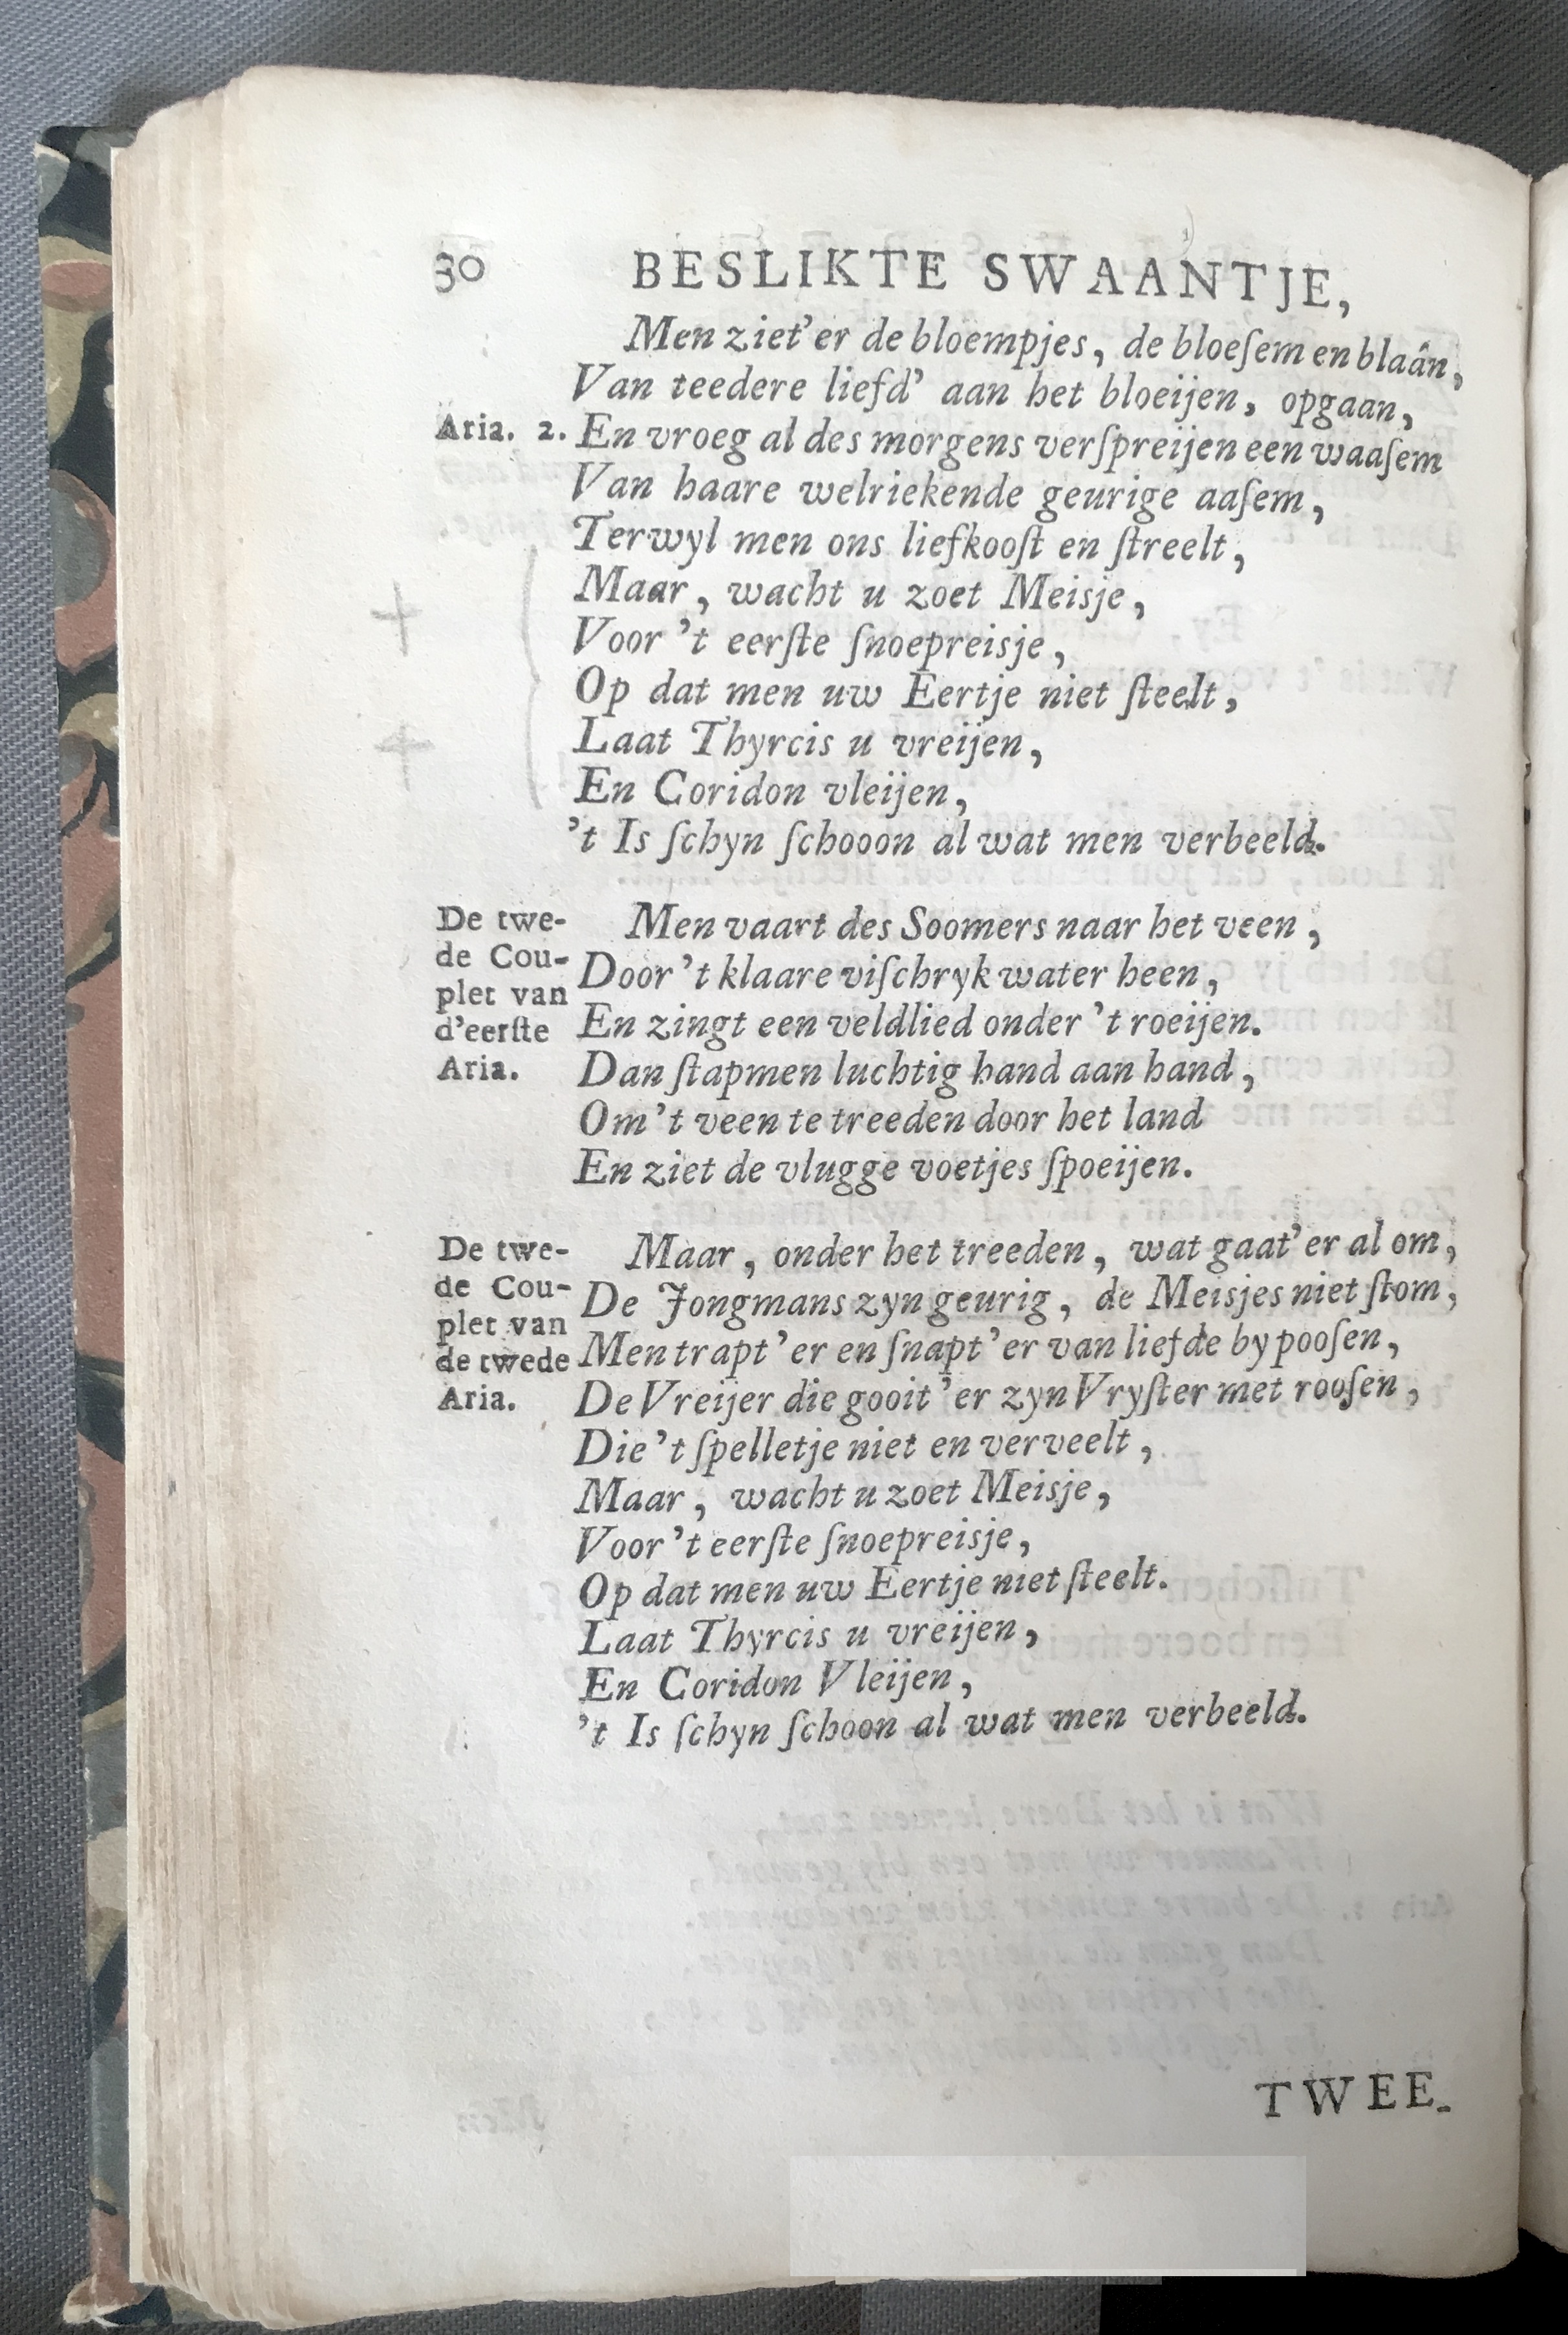 30 BESLIKTE SWAANTJE,
Men ziet'er de bloempjes, de bloeſem en blaân,
Van teedere liefd' aan het bloeijen, opgaan,
Aria. 2. En vroeg al des morgens verſpreijen een waaſem
Van haare welriekende geurige aaſem,
Terwyl men ons liefkooſt en ſtreelt,
Maar, wacht u zoet Meisje,
Voor 't eerſte ſnoepreisje,
Op dat men uw Eertje niet ſteelt,
Laat Thyrcis u vreijen,
En Coridon vleijen,
't Is ſchyn ſchooon al wat men verbeeld.
De twe-
de Cou-
plet van
d'eerſte
Aria.
Men vaart des Soomers naar het veen,
Door 't klaare viſchryk water heen,
En zingt een veldlied onder 't roeijen.
Dan ſtapmen luchtig hand aan hand,
Om 't veen te treeden door het land
En ziet de vlugge voetjes ſpoeijen.
De twe-
de Cou-
plet van
de twede
Aria.
Maar, onder het treeden, wat gaat'er al om,
De Jongmans zyn geurig, de Meisjes niet ſtom,
Men trapt'er en ſnapt'er van liefde by pooſen,
De Vreijer die gooit'er zyn Vryſter met rooſen,
Die 't ſpelletje niet en verveelt,
Maar, wacht u zoet Meisje,
Voor 't eerſte ſnoepreisje,
Op dat men uw Eertje niet ſteelt.
Laat Thyrcis u vreijen,
En Coridon Vleijen,
't Is ſchyn ſchoon al wat men verbeeld.
TWEE-